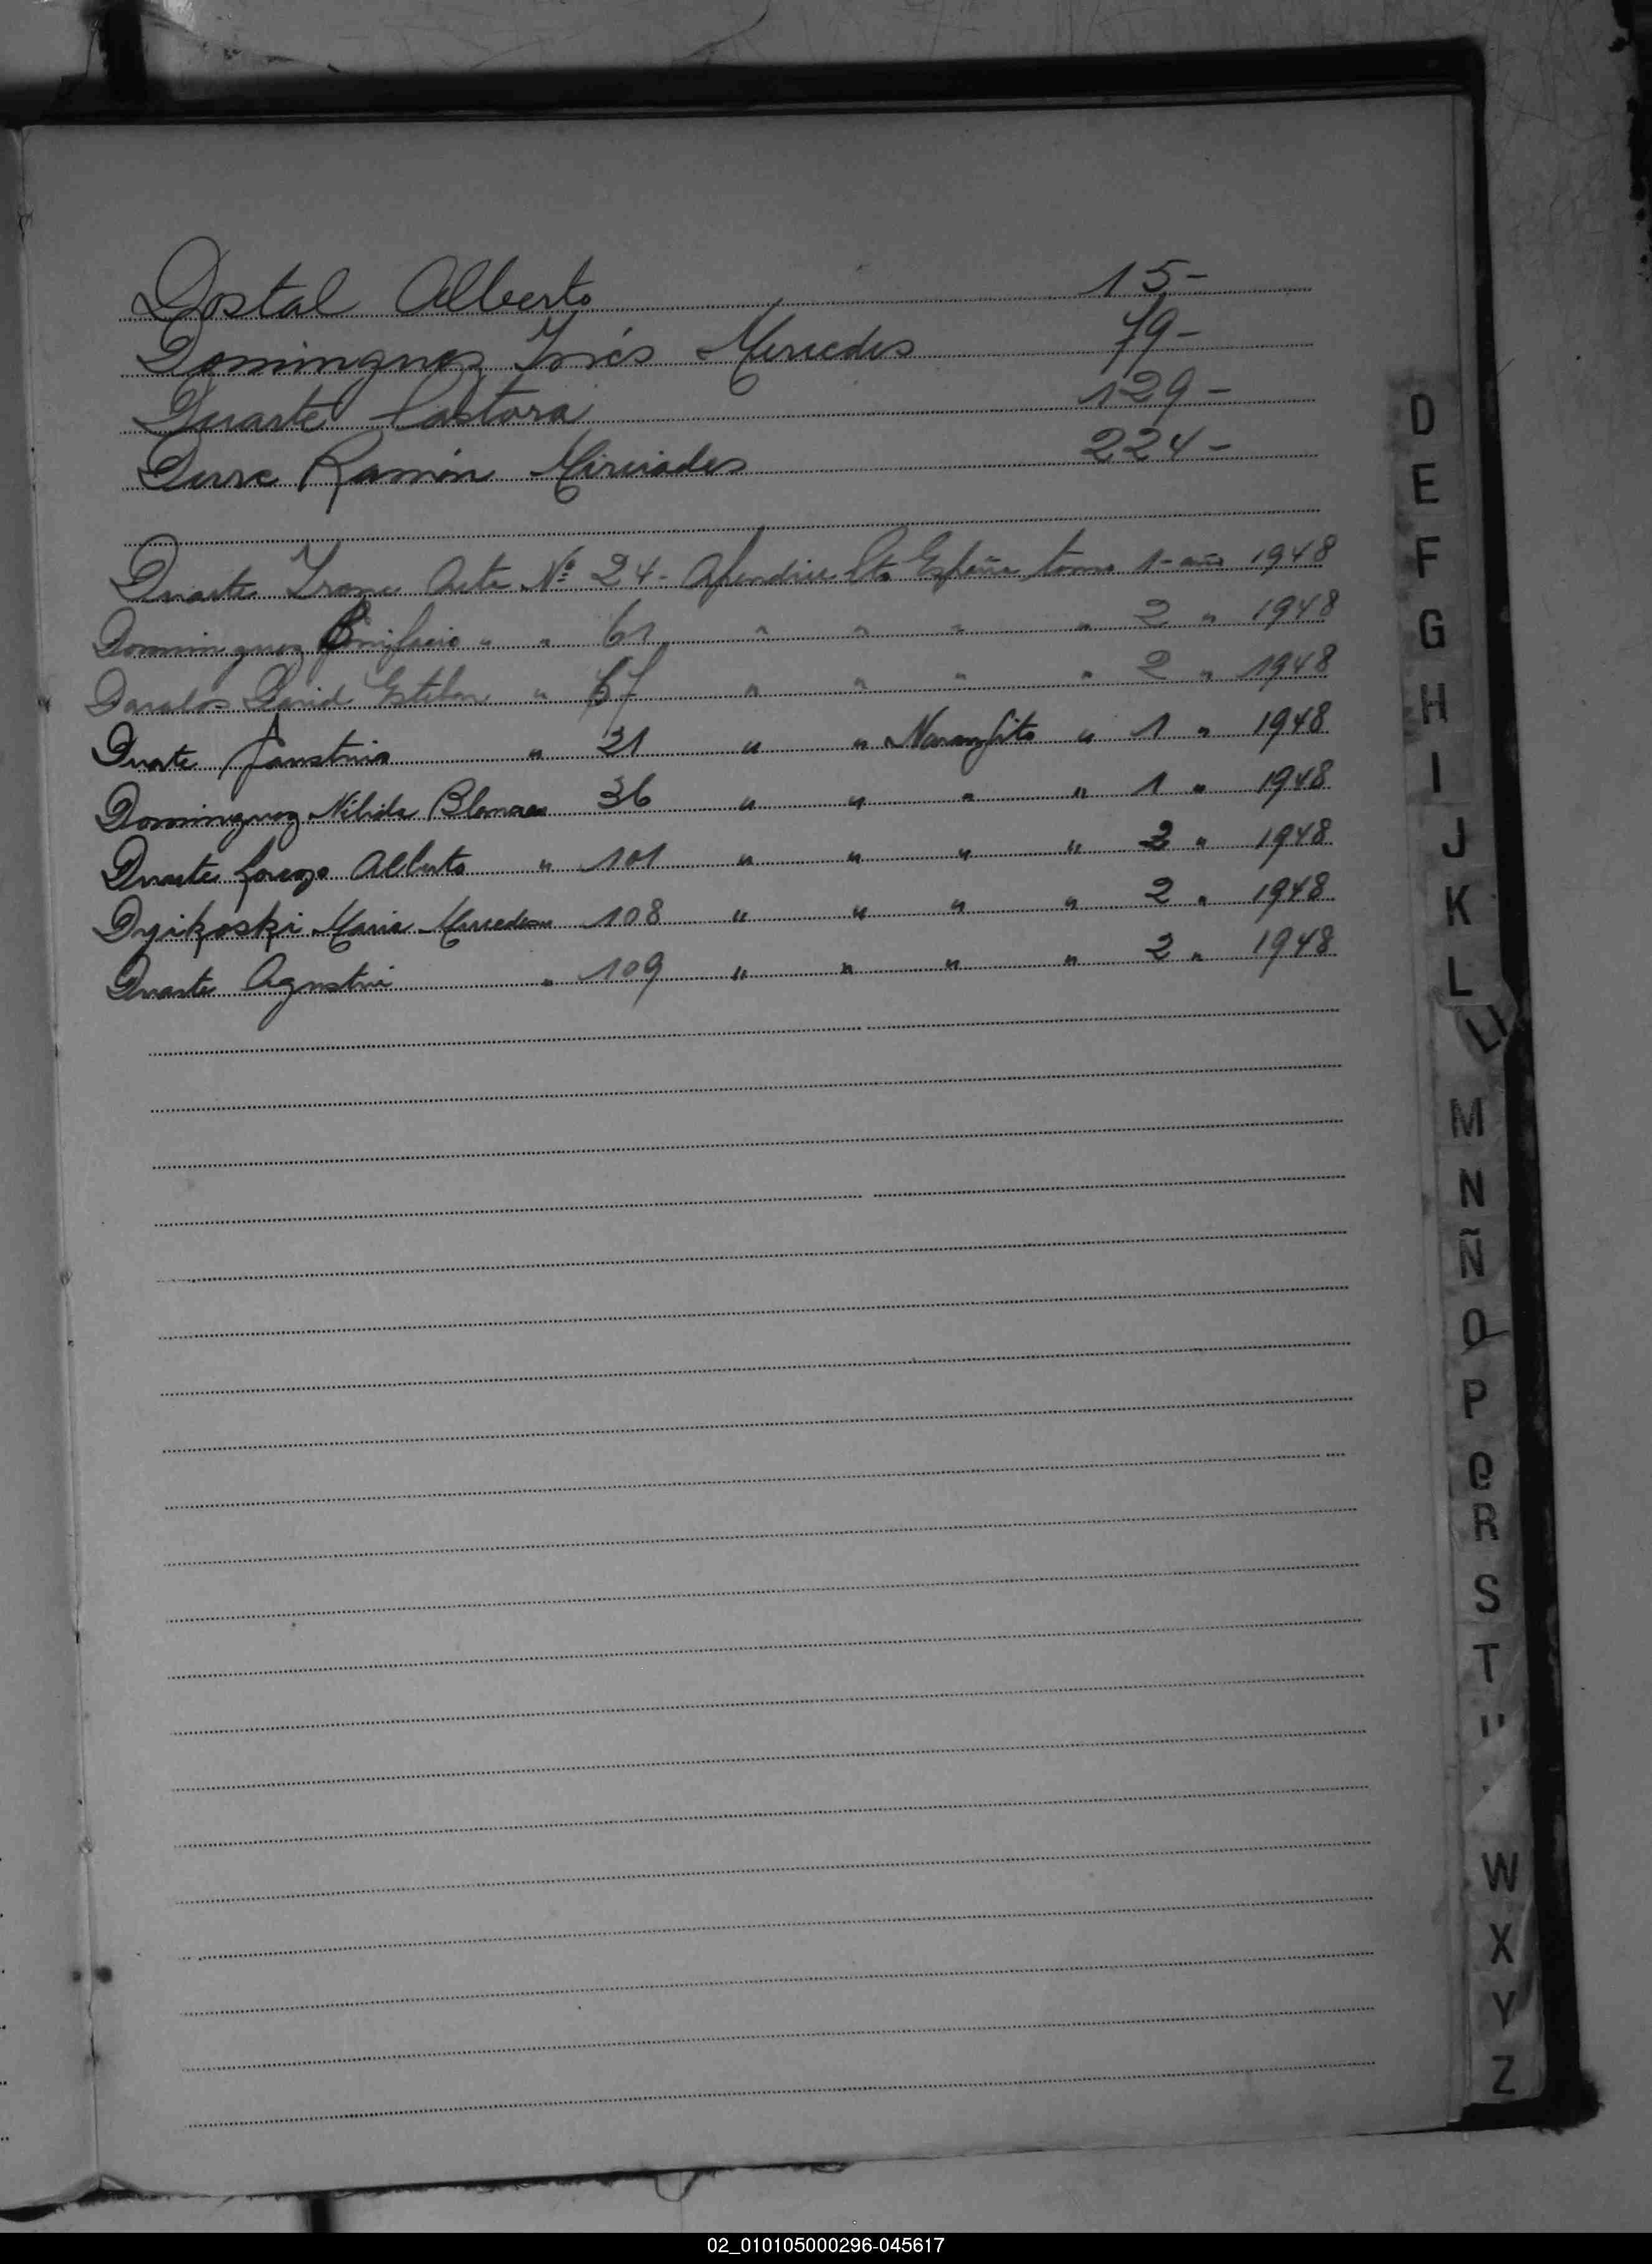 Dostal Alberto 15-
Dominguez Inés Mercedes 79-
Duarte Pastora 129-
Derre Ramón Mirciades 224-
Duarte Irone Acta Nº 24- Apendice Cto España tomo 1- año 1948
Dominguez Bonifacio " " 61 " " " " 2 " 1948
Davalos David Esteban " 67 " " " " 2 " 1948
Duarte Faustino " 31 " " Naranjito " 1 " 1948
Dominguez Nélida Blanca " 36 " " " " 1 " 1948
Duarte Alberto " 101 " " " " 2 " 1948
Dyikoski Maria Mercedes " 108 " " " " 2 " 1948
Duarte Agustin " 109 " " " " 2 " 1948
D
E
F
G
H
I
J
K
L
Ll
M
N
Ñ
O
P
Q
R
S
T
W
X
Y
Z
02_010105000296-045617